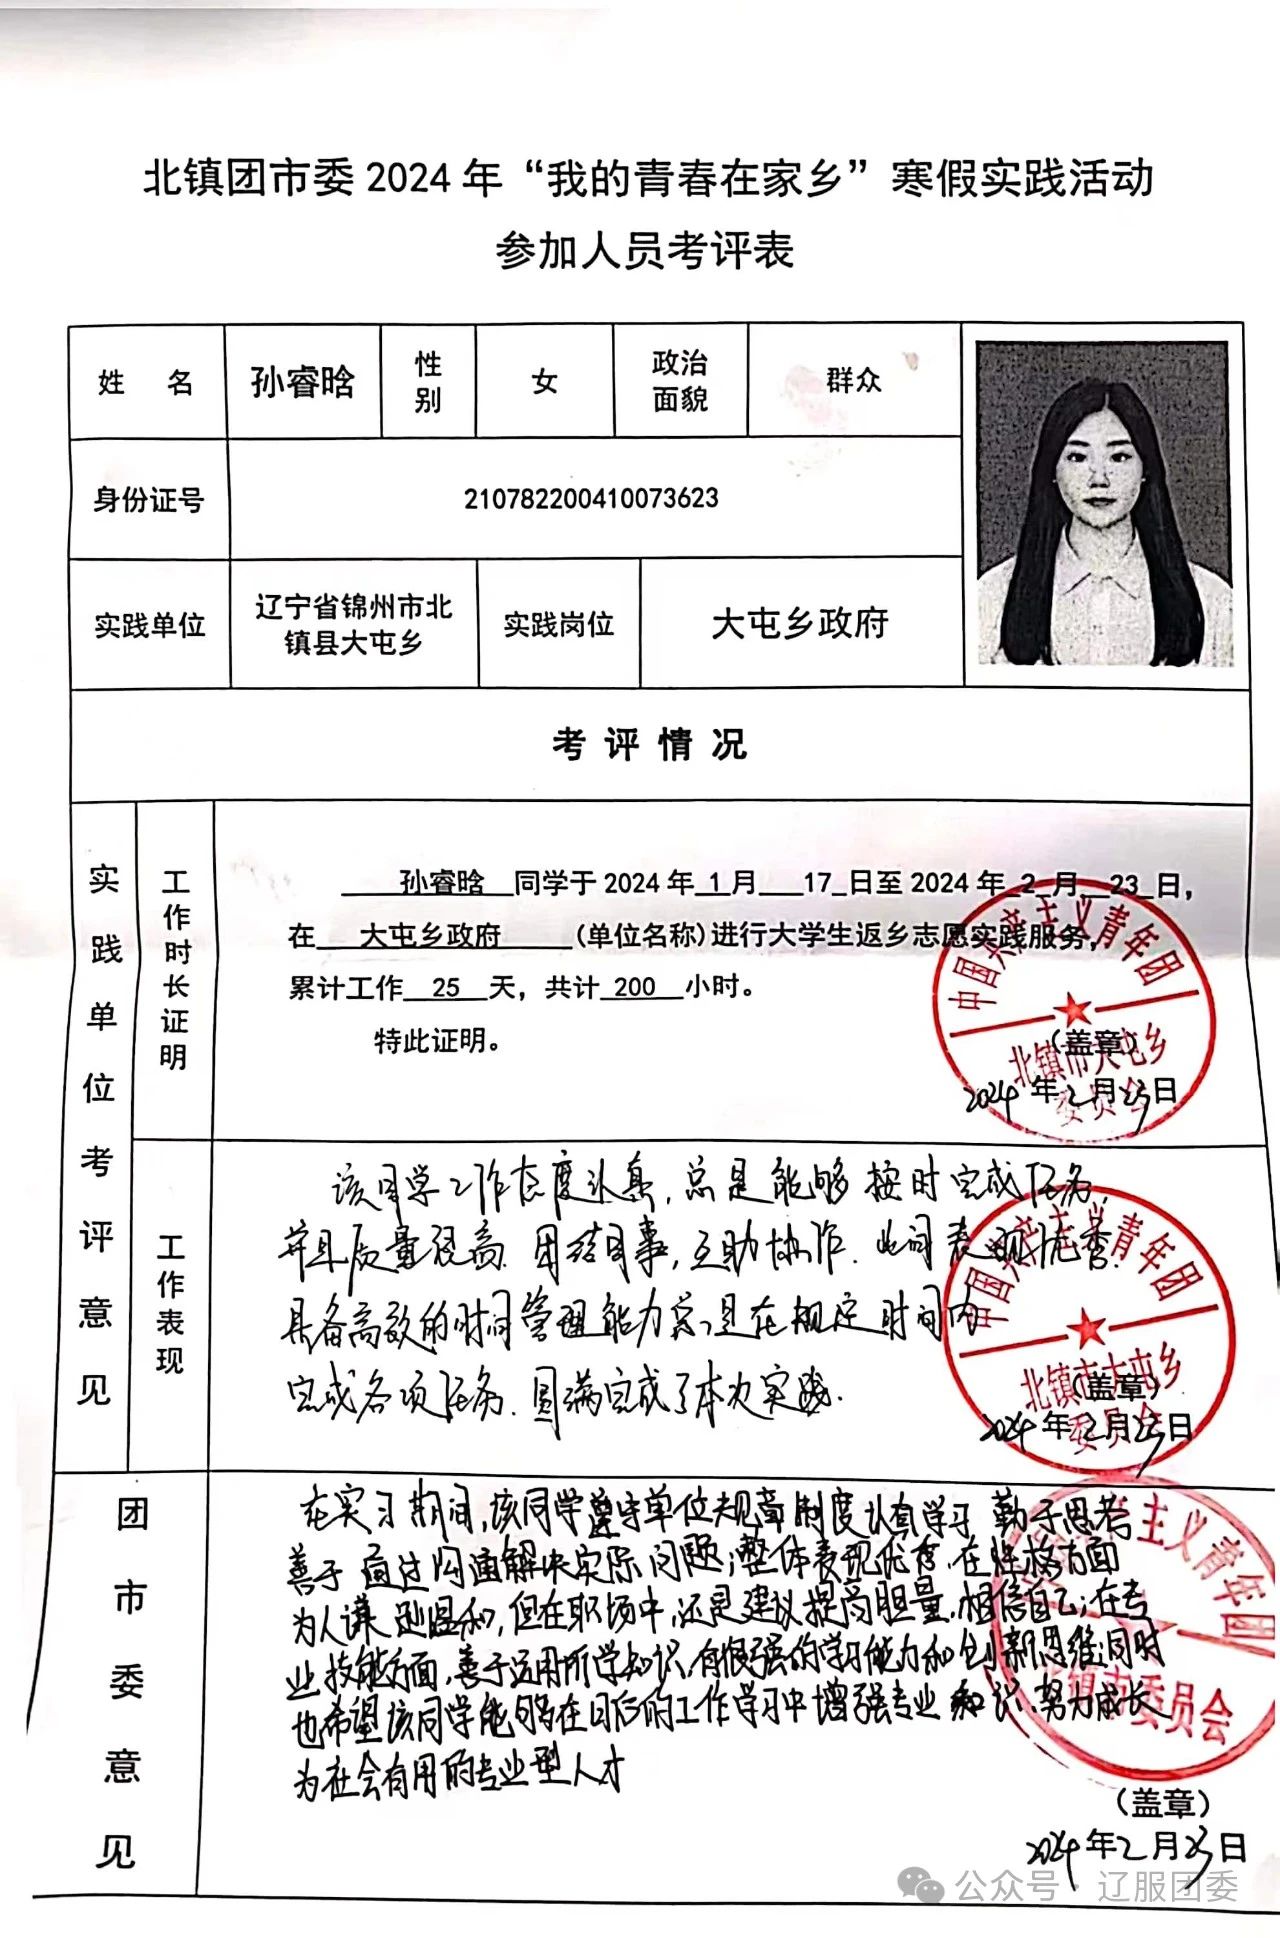 北镇团市委 2024 年“我的青春在家乡”寒假实践活动
参加人员考评表
姓 名 孙睿晗 性别 女 政治面貌 群众
身份证号 210782200410073623
实践单位 辽宁省锦州市北镇县大屯乡 实践岗位 大屯乡政府
考 评 情 况
实践单位考评意见
工作时长证明
孙睿晗 同学于 2024 年 1 月 17 日至 2024 年 2 月 23 日，
在 大屯乡政府 (单位名称)进行大学生返乡志愿实践服务，
累计工作 25 天，共计 200 小时。
特此证明。
中国共产主义青年团
北镇市大屯乡
委员会
（盖章）
2024 年 2 月 23 日
工作表现
该同学工作态度认真，总是能够按时完成任务，
并且质量很高。团结同事，互助协作。此间表现优秀。
具备高效的时间管理能力，总是在规定时间内
完成各项任务。圆满完成了本次实践。
中国共产主义青年团
北镇市大屯乡
委员会
（盖章）
2024 年 2 月 23 日
团市委意见
在实习期间，该同学遵守单位规章制度认真学习 勤于思考
善于通过沟通解决实际问题；整体表现优秀，在性格方面
为人谦逊温和，但在职场中，还是建议提高胆量，相信自己；在专
业技能方面，善于运用所学知识，有很强的学习能力和创新思维；同时
也希望该同学能够在日后的工作学习中增强专业知识，努力成长
为社会有用的专业型人才
主义青年团
北镇市委员会
（盖章）
2024 年 2 月 23 日
公众号 · 辽服团委